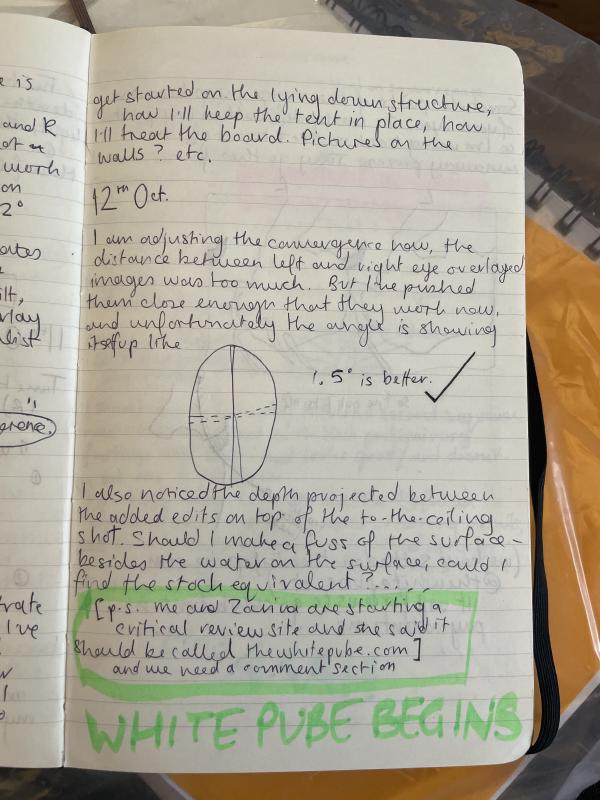 e is
and R
ot a
worth
on
2°
ates
ilt,
rlay
list
erence.
trate
I've
get started on the lying down structure,
how I'll keep the tent in place, how
I'll treat the board. Pictures on the
walls? etc.
12th Oct.
I am adjusting the convergence now, the
distance between left and right eye overlayed
images was too much. But I've pushed
them close enough that they work now,
and unfortunately the angle is showing
itself up like
1.5° is better. ✓
I also noticed the depth projected between
the added edits on top of the to-the-ceiling
shot. Should I make a fuss of the surface -
besides the water on the surface, could I
find the stock equivalent? . . . .
[p.s. me and Zarina are starting a
critical review site and she said it
should be called thewhitepube.com]
and we need a comment section
WHITE PUBE BEGINS